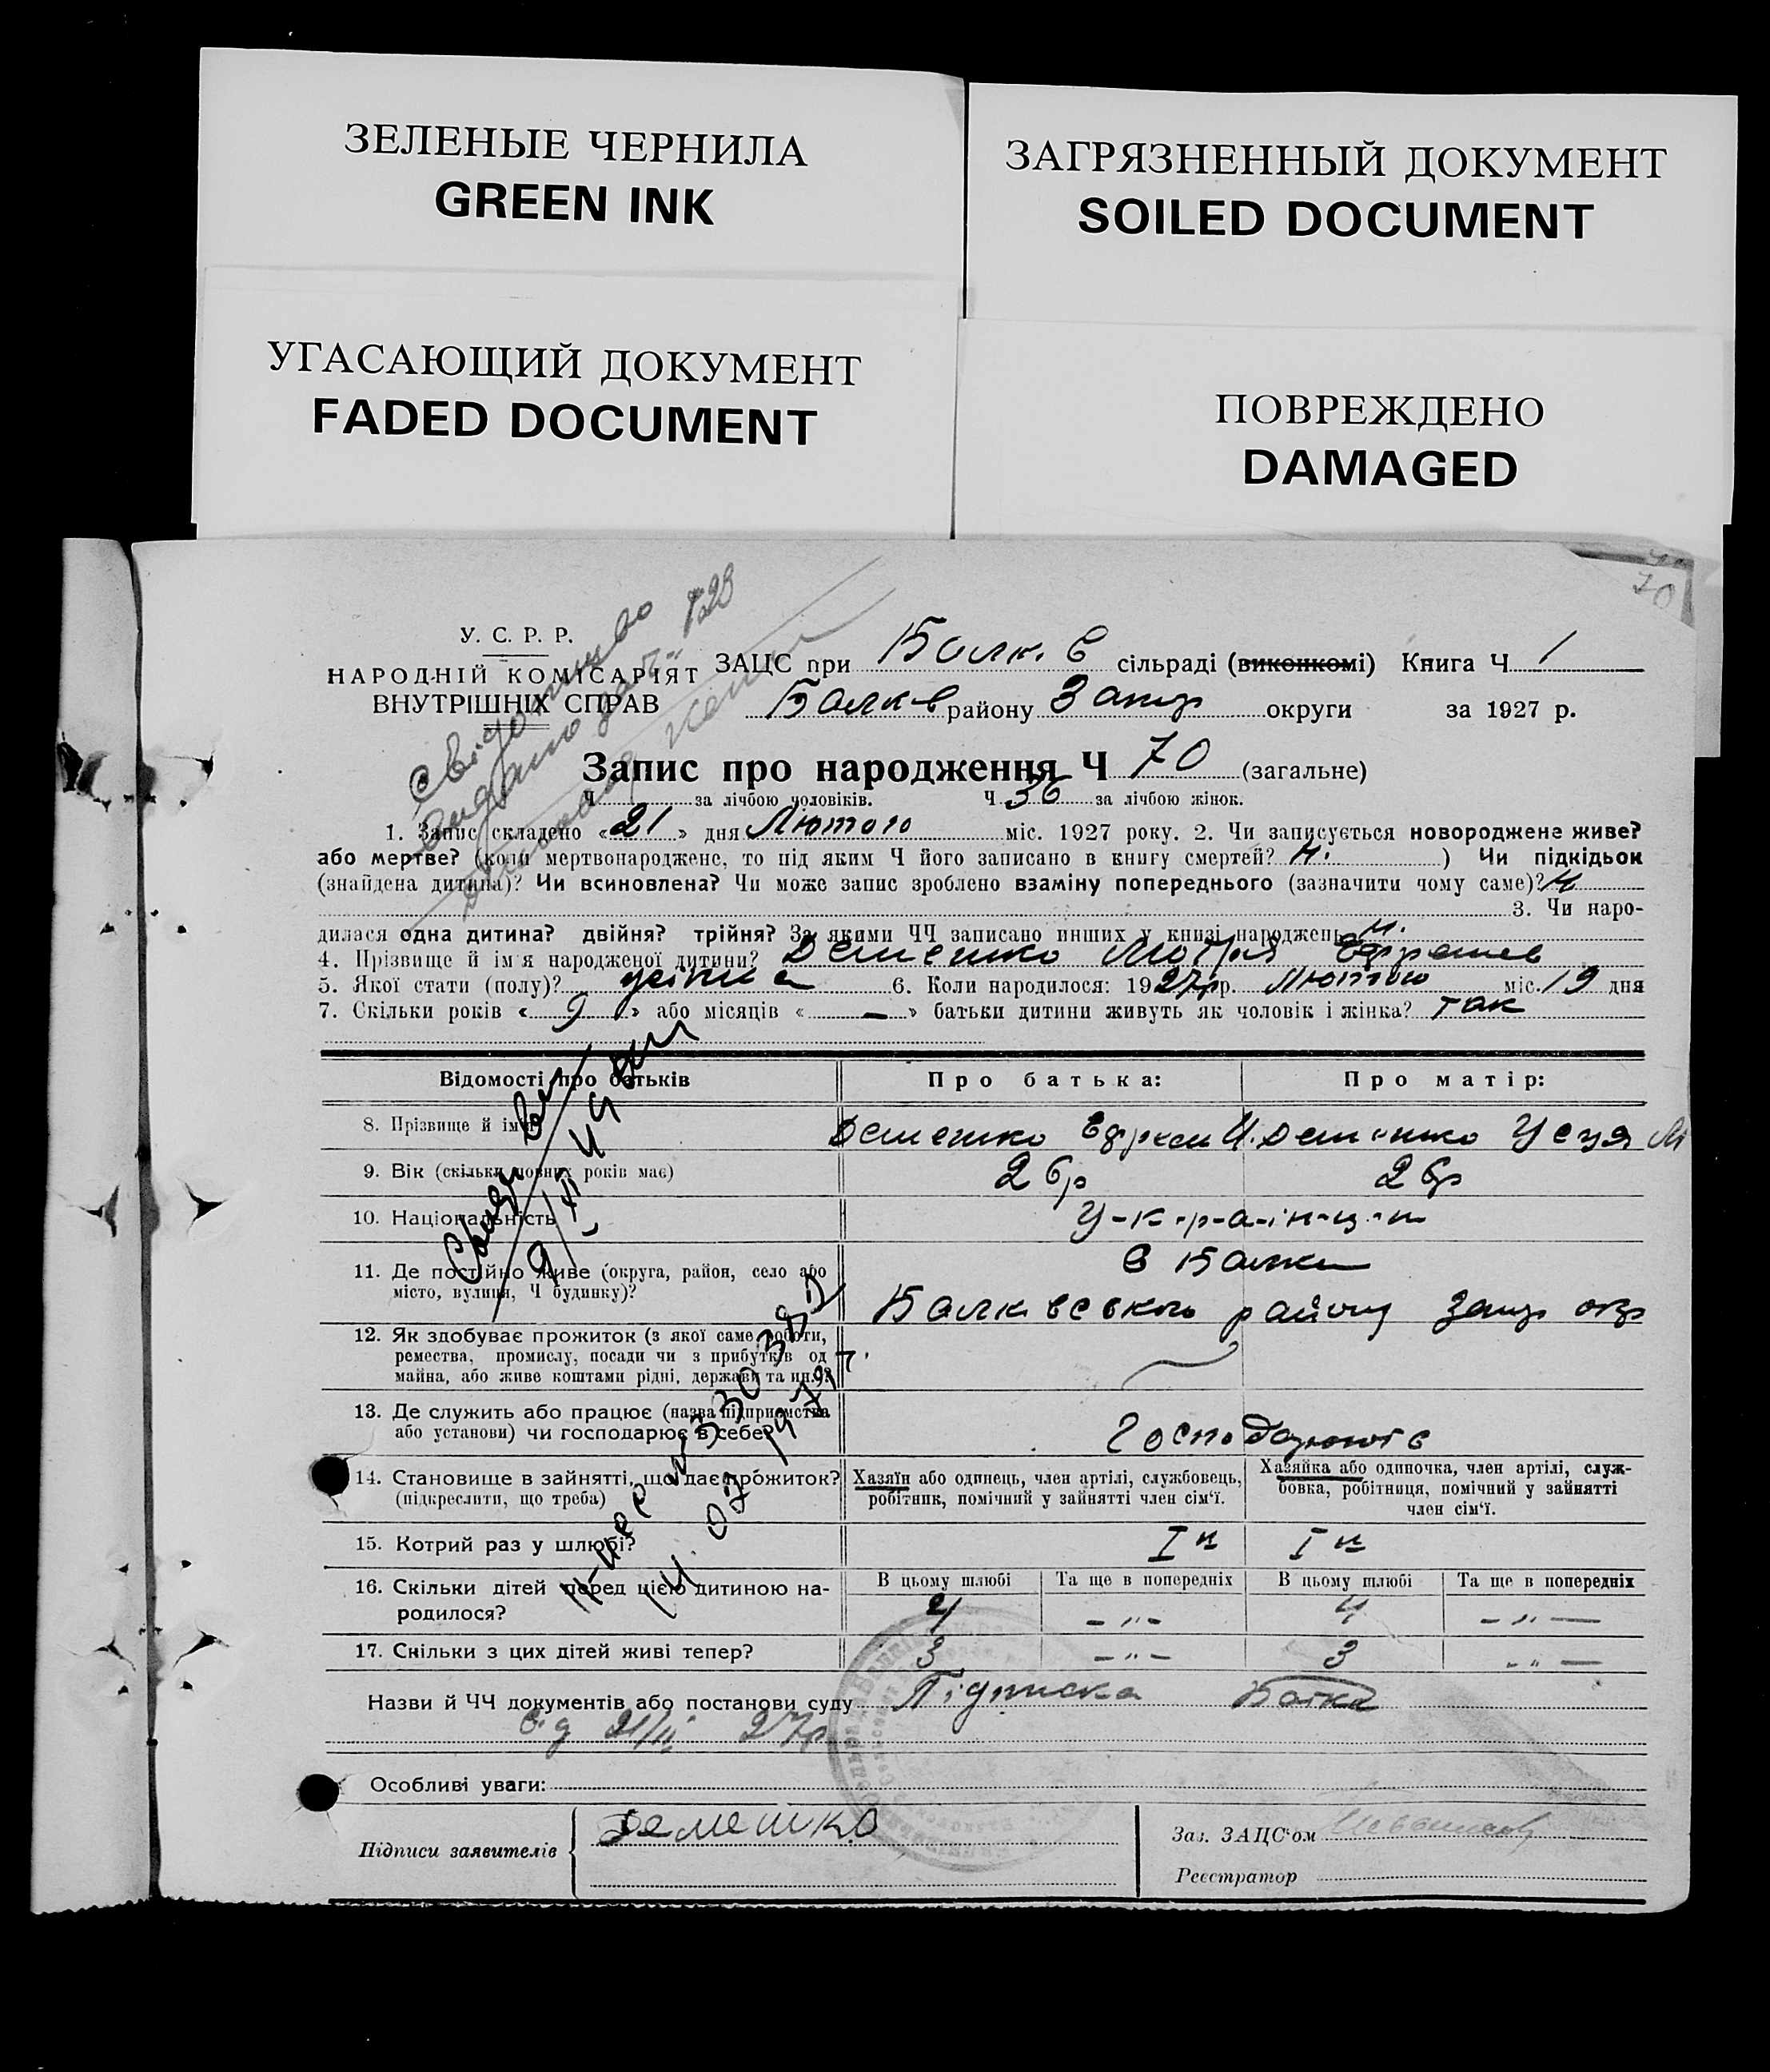 ЗЕЛЕНЫЕ ЧЕРНИЛА
GREEN INK
ЗАГРЯЗНЕННЫЙ ДОКУМЕНТ
SOILED DOCUMENT
УГАСАЮЩИЙ ДОКУМЕНТ
FADED DOCUMENT
ПОВРЕЖДЕНО
DAMAGED
70
У. С. Р. Р.
НАРОДНІЙ КОМІСАРІЯТ
ВНУТРІШНІХ СПРАВ
ЗАЦС при Балк. в сільраді (виконкомі) Книга Ч 1
Балк в району Запор округи за 1927 р.
Запис про народження Ч 70 (загальне)
Ч за лічбою чоловіків. Ч 36 за лічбою жінок.
1. Запис складено «21» дня Лютого міс. 1927 року. 2. Чи записується новороджене живе?
або мертве? (коли мертвонароджене, то під яким Ч його записано в книгу смертей? н. ) Чи підкідьок
(знайдена дитина)? Чи всиновлена? Чи може запис зроблено взаміну попереднього (зазначити чому саме)? н
3. Чи наро-
дилася одна дитина? двійня? трійня? За якими ЧЧ записано инших у книзі народжень н.
4. Прізвище й ім'я народженої дитини? Демешко Мотря Ефремов
5. Якої стати (полу)? жіноча 6. Коли народилося: 1927р р. Лютого міс. 19 дня
7. Скільки років «9» або місяців «—» батьки дитини живуть як чоловік і жінка? так
Відомості про батьків
Про батька:
Про матір:
8. Прізвище й ім'я Демешко Ефрем И. Демешко Усця М
9. Вік (скільки повних років має) 26р 26р
10. Національність У-к-р-а-ін-ц-и
11. Де постійно живе (округа, район, село або
місто, вулиця, Ч будинку)?
в Балки
Балковського району Запор окр
12. Як здобуває прожиток (з якої саме роботи,
ремества, промислу, посади чи з прибутків од
майна, або живе коштами рідні, держави та ин.)?
13. Де служить або працює (назва підприємства
або установи) чи господарює в себе?
Господарюють
14. Становище в зайнятті, що дає прожиток?
(підкреслити, що треба)
Хазяїн або одинець, член артілі, службовець,
робітник, помічний у зайнятті член сім'ї.
Хазяйка або одиночка, член артілі, служ-
бовка, робітниця, помічний у зайнятті
член сім'ї.
15. Котрий раз у шлюбі? I й I й
16. Скільки дітей перед цією дитиною на-
родилося?
В цьому шлюбі Та ще в попередніх В цьому шлюбі Та ще в попередніх
4 – „ – 4 – „ –
17. Скільки з цих дітей живі тепер? 3 – „ – 3 – „ –
Назви й ЧЧ документів або постанови суду Підписка Батка
від 21/II 27р
Особливі уваги:
Підписи заявителів
Демешко
Зав. ЗАЦС'ом
Реєстратор